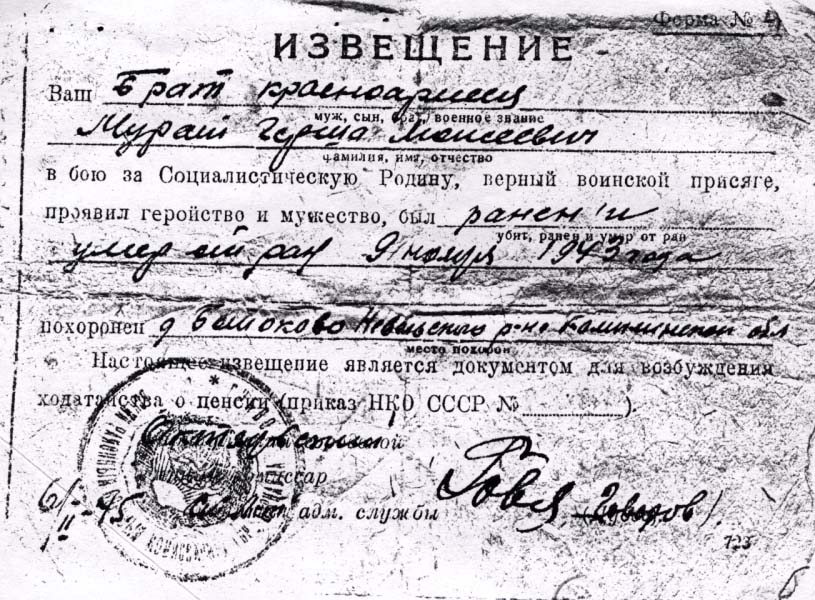 Форма № 4
ИЗВЕЩЕНИЕ
Ваш брат красноармеец
муж, сын, брат, военное звание
Мураш Герша Моисеевич
фамилия, имя, отчество
в бою за Социалистическую Родину, верный воинской присяге,
проявил геройство и мужество, был ранен и
убит, ранен и умер от ран
умер от ран 9 ноября 1943 года
похоронен д Невельского р-на Калининской обл
место похорон
Настоящее извещение является документом для возбуждения
ходатайства о пенсии (приказ НКО СССР № ).
Октябрьский
комиссар
6/II-45 адм. службы (Говядов)
723